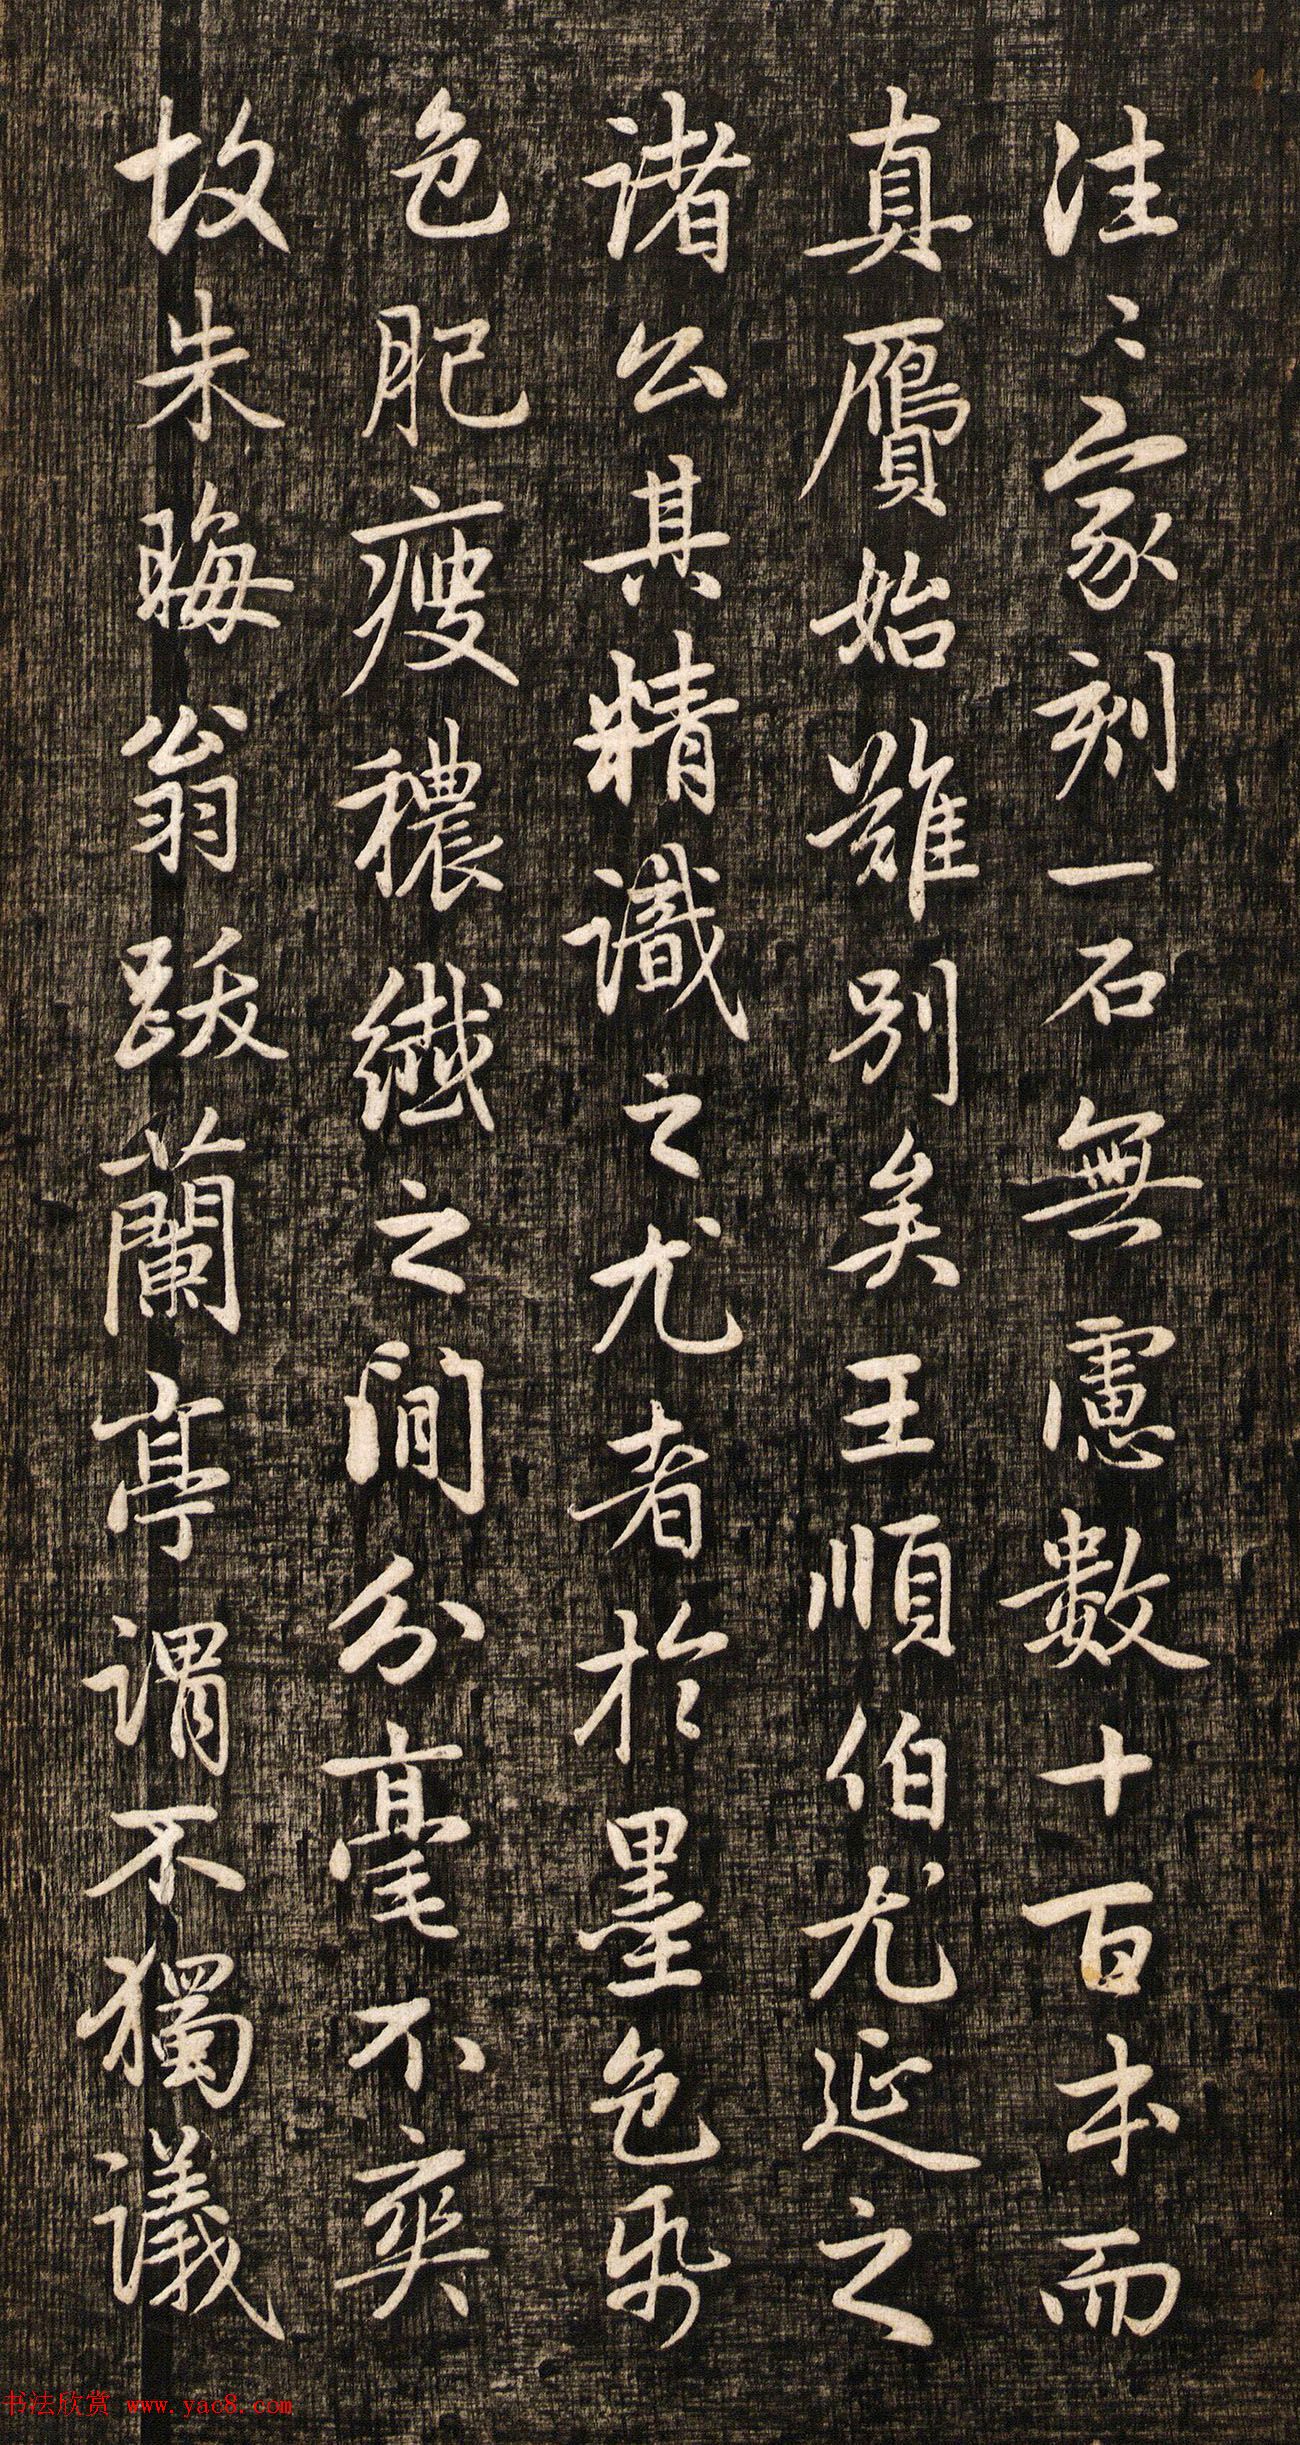 往〻家刻一石無慮數十百本而
真贋始難別矣王順伯尤延之
諸公其精識之尤者於墨色紙
色肥瘦穠纖之間分毫不爽
故朱晦翁跋蘭亭謂不獨議
书法欣赏 www.yac8.com